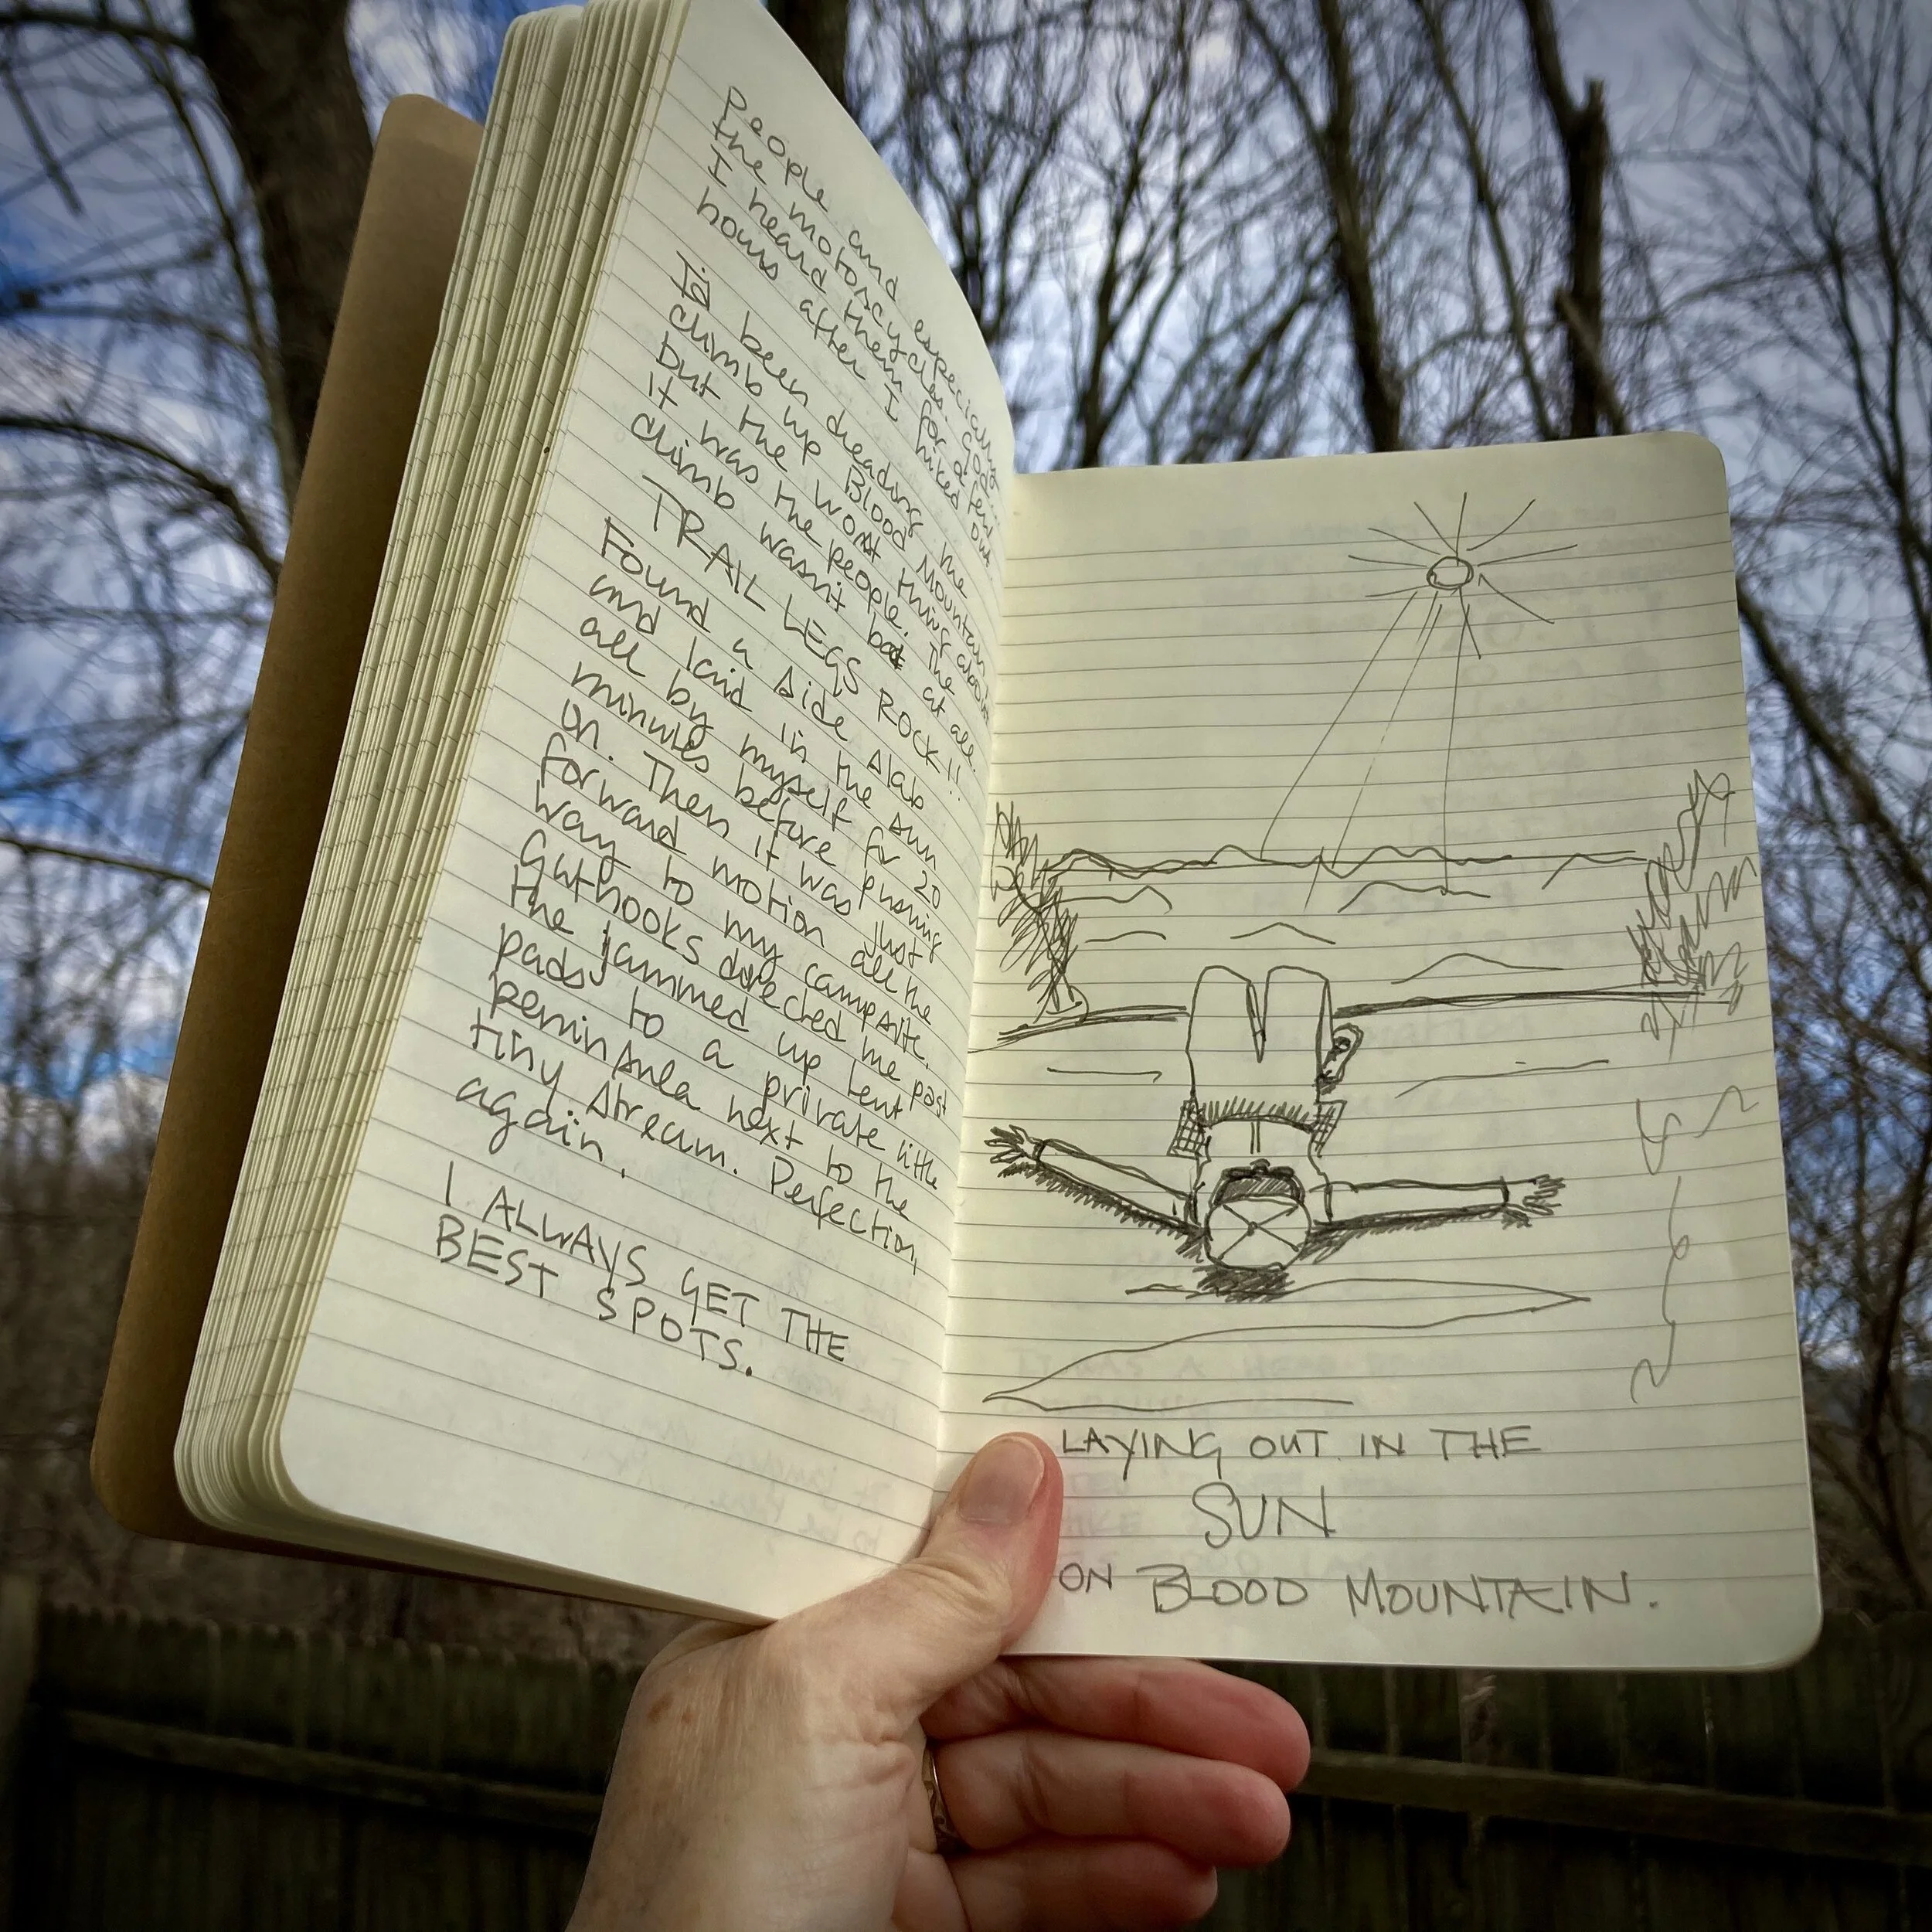 People and especially
the motorcycles. God..
I heard them for a few
hours after I hiked out.
I'd been dreading the
climb up Blood Mountain
but the worst thing about
it was the people. The
climb wasn't bad at all.
TRAIL LEGS ROCK!!
Found a side slab
and laid in the sun
all by myself for 20
minutes before pushing
on. Then it was just
forward motion all the
way to my campsite.
Guthooks directed me past
the jammed up tent
pads to a private little
peninsula next to the
tiny stream. Perfection,
again.
I ALWAYS GET THE
BEST SPOTS.
LAYING OUT IN THE
SUN
ON BLOOD MOUNTAIN.